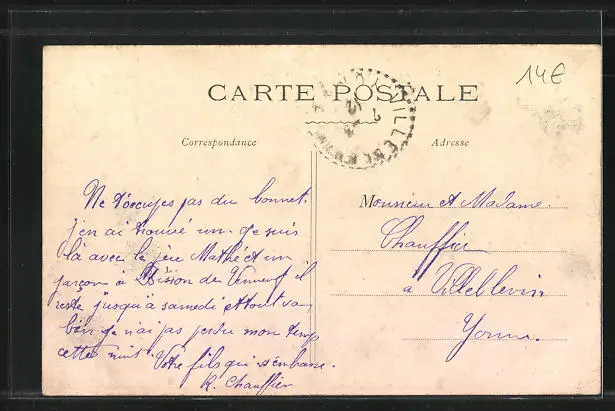 14€
CARTE POSTALE
Correspondance
Adresse
Ne t'occupes pas du bonnet.
j'en ai trouvé un. Je suis
là avec le père Mathé et un
garçon à de il
reste jusqu'à samedi et tout va
bien je n'ai pas perdu mon temps
cette nuit. Votre fils qui s'
R. Chauffier
Monsieur et Madame
Chauffier
à Villeblevin
Yonne.